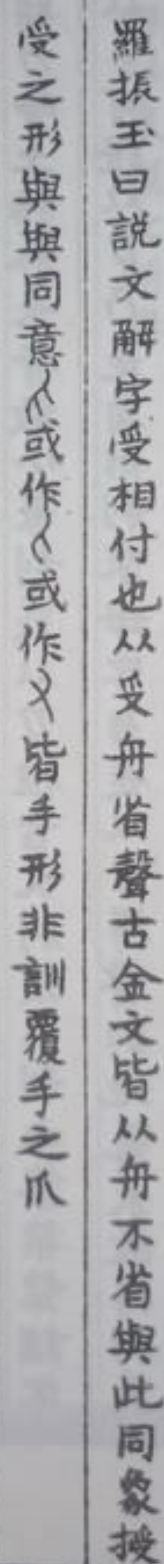 羅振玉曰説文解字受相付也从𠬪舟省聲古金文皆从舟不省與此同象授
受之形與與同意或作或作皆手形非訓覆手之爪